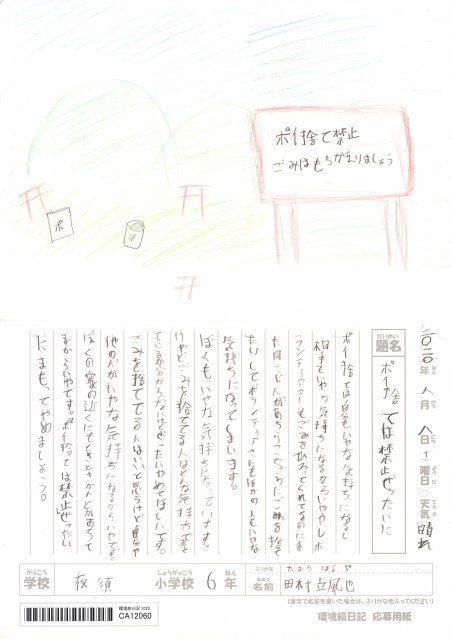 ポイ捨て禁止
ごみはもちかえりましょう
ポ
二〇二〇年 八月 八日 土曜日 天気 晴れ
だいめい
題名 ポイ捨ては禁止ぜったいに
ポイ捨ては自分もいやな気持ちになるし
相手もいやな気持ちになるからいややしボ
ランティアさーもごみをひろてくれてるのにま
たり してボランティアさんもほかの人もいやな
気持ちになってしまいます。
ぼくもいやな気持ちになっています。
けれどごみを捨ててる人はどんな気持ちで
ごみを捨ててる人はいいと思うけど
他の人がいやな気持ちになるからいやです。
ぼくの家の近くにもときどき
るからいやです。ポイ捨ては禁止ぜったい
にまもってやめましょう。
がっこう
学校 夜須 しょうがっこう 小学校 6 ねん 年
ふりがな たむら はるや
なまえ
名前 田村立風也
(漢字で名前を書いた場合は、ふりがなをふってください)
環境絵日記 2020
CA12060
環境絵日記 応募用紙